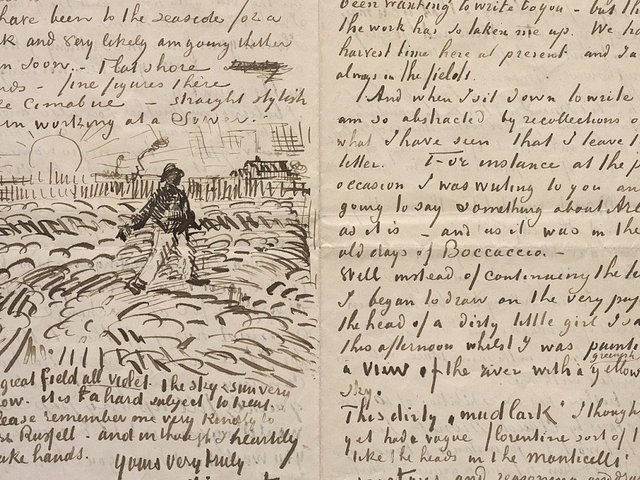 have been to the seaside for a
and very likely am going thither
soon. - Flat shore
- fine figures there
Cimabue - straight stylish
working at a Sower.
great field all violet the sky & sun very
. it is a hard subject to treat.
please remember me very kindly to
Russell - and in thought I heartily
hands.
yours very truly
been wanting to write to you - but th
the work has so taken me up. We ha
harvest time here at present and I a
always in the fields.
And when I sit down to write
am so abstracted by recollections o
what I have seen that I leave t
letter. For instance at the p
occasion I was writing to you an
going to say something about Arl
as it is - and as it was in the
old days of Boccaccio. -
Well instead of continuing the le
I began to draw on the very pap
the head of a dirty little girl I sa
this afternoon whilst I was painti
a view of the river with a greenish yellow
sky.
This dirty "mudlark" I though
yet had a vague florentine sort of
like the heads in the monticelli
and reasoning